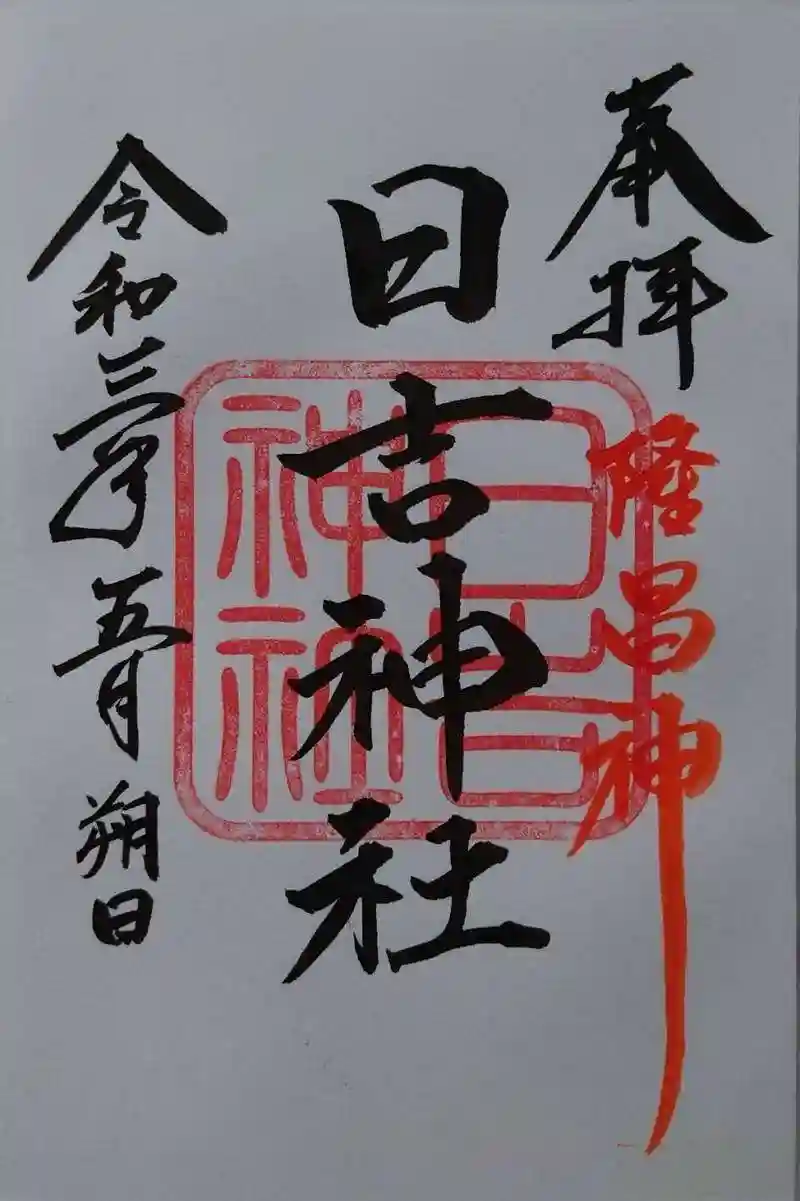 奉拝
隆昌神
日吉神社
日吉
神社
令和三年五月朔日